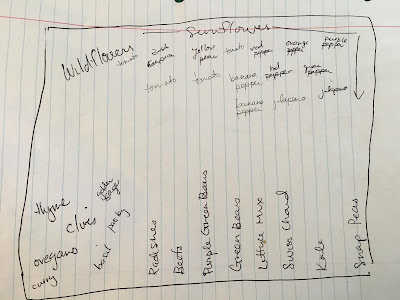 Sunflower
Wildflowers
tomato
banana
yellow
pear
tomato
red
pepper
orange
pepper
purple
pepper
tomato
tomato
banana
pepper
red
pepper
pepper
banana
pepper
jalapeno
jalapeno
thyme
Chives
oregano
curry
golden
sage
basil
parsley
Radishes
Beets
Purple Green Beans
Green Beans
Lettuce Mix
Swiss Chard
Kale
Snap Peas